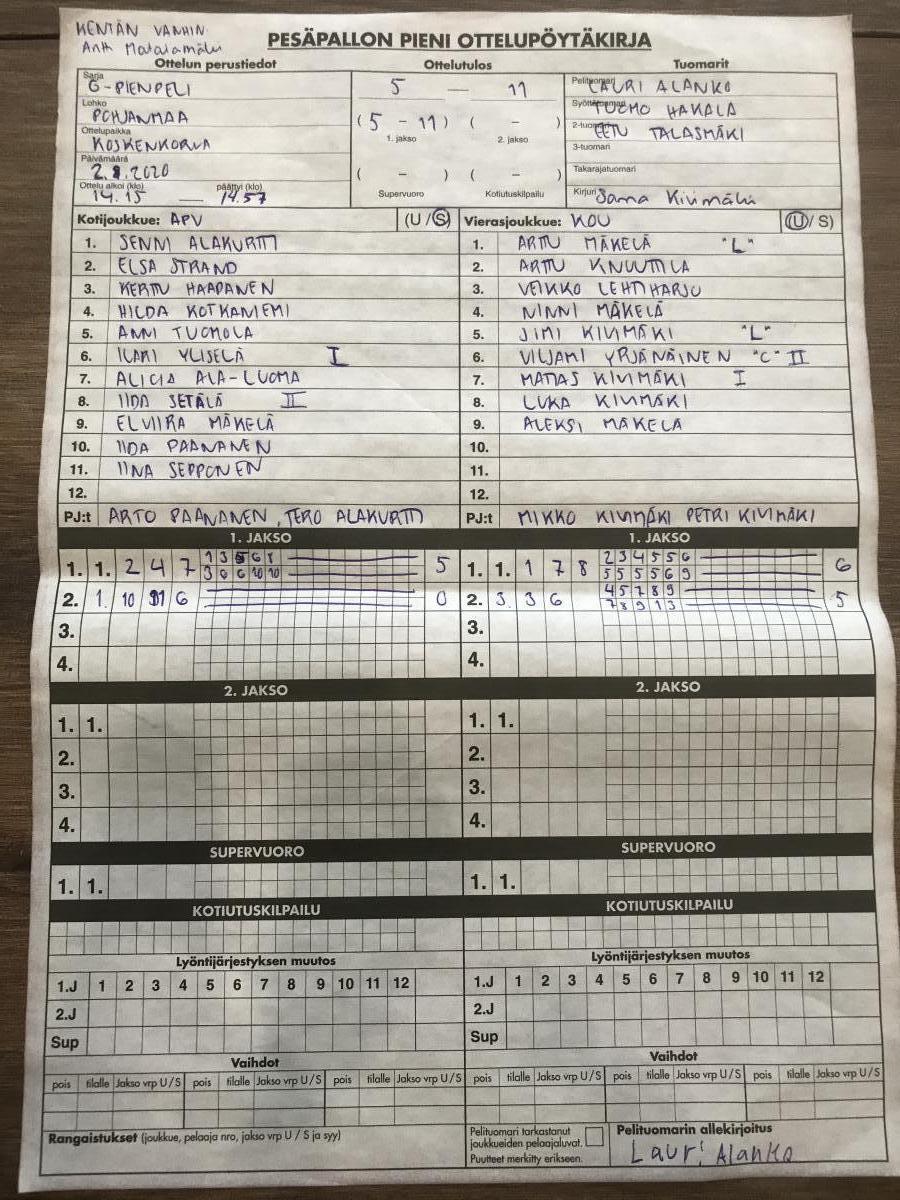 KENTÄN VANHIN
Antti Matalamäki
PESÄPALLON PIENI OTTELUPÖYTÄKIRJA
Ottelun perustiedot Ottelutulos Tuomarit
Sarja G-PIENPELI
Lohko POHJANMAA
Ottelupaikka KOSKENKORVA
Päivämäärä 2.8.2020
Ottelu alkoi (klo) 14.15 — päättyi (klo) 14.57
5 — 11
( 5 - 11 ) ( - )
1. jakso 2. jakso
( - ) ( - )
Supervuoro Kotiutuskilpailu
Pelituomari LAURI ALANKO
Syöttötuomari TUOMO HAKALA
2-tuomari EETU TALASMÄKI
3-tuomari
Takarajatuomari
Kirjuri Sanna Kivimäki
Kotijoukkue: APV (U / S)
1. SENNI ALAKURTTI
2. ELSA STRAND
3. KERTTU HAAPANEN
4. HILDA KOTKANIEMI
5. ANNI TUOMOLA
6. ILARI YLISELÄ I
7. ALICIA ALA-LUOMA
8. IIDA SETÄLÄ II
9. ELVIIRA MÄKELÄ
10. IIDA PAANANEN
11. IINA SEPPONEN
12.
PJ:t ARTO PAANANEN, TERO ALAKURTTI
Vierasjoukkue: KOU (U / S)
1. ARTTU MÄKELÄ "L"
2. ARTTU KNUUTTILA
3. VEIKKO LEHTIHARJU
4. NINNI MÄKELÄ
5. JIMI KIVIMÄKI "L"
6. VILJAMI YRJÄNÄINEN "C" II
7. MATIAS KIVIMÄKI I
8. LUKA KIVIMÄKI
9. ALEKSI MÄKELÄ
10.
11.
12.
PJ:t MIKKO KIVIMÄKI PETRI KIVIMÄKI
1. JAKSO 1. JAKSO
1. 1. 2 4 7 1 3 5 6 8 5
3 6 6 10 10
2. 1. 10 11 6 0
3.
4.
1. 1. 1 7 8 2 3 4 5 5 6 6
5 5 5 5 6 9
2. 3. 3 6 4 5 7 8 9 5
7 8 9 1 3
3.
4.
2. JAKSO 2. JAKSO
1. 1. 1. 1.
2. 2.
3. 3.
4. 4.
SUPERVUORO SUPERVUORO
1. 1. 1. 1.
KOTIUTUSKILPAILU KOTIUTUSKILPAILU
Lyöntijärjestyksen muutos Lyöntijärjestyksen muutos
1.J 1 2 3 4 5 6 7 8 9 10 11 12 1.J 1 2 3 4 5 6 7 8 9 10 11 12
2.J 2.J
Sup Sup
Vaihdot Vaihdot
pois tilalle Jakso vrp U / S pois tilalle Jakso vrp U / S pois tilalle Jakso vrp U / S pois tilalle Jakso vrp U / S pois tilalle Jakso vrp U / S pois tilalle Jakso vrp U / S
Rangaistukset (joukkue, pelaaja nro, jakso vrp U / S ja syy)
Pelituomari tarkastanut
joukkueiden pelaajaluvat.
Puutteet merkitty erikseen.
Pelituomarin allekirjoitus
Lauri Alanko